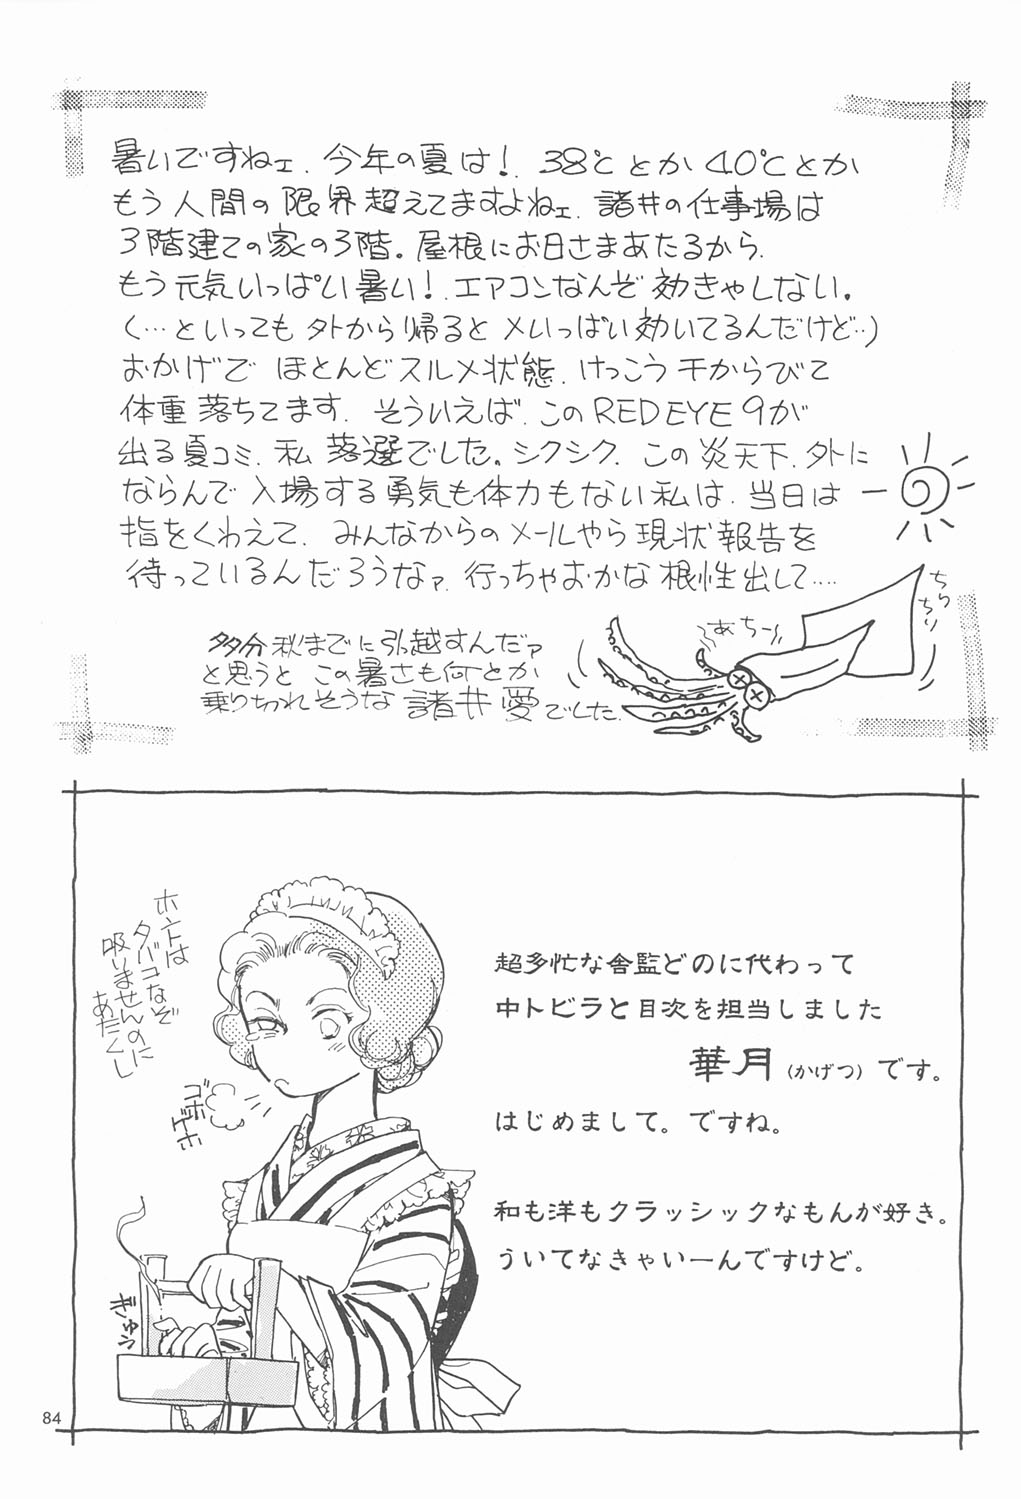 暑いですねェ、今年の夏は！ 38℃とか40℃とか
もう人間の限界超えてますよねェ、諸井の仕事場は
3階建ての家の3階。屋根にお日さまあたるから、
もう元気いっぱい暑い！、エアコンなんぞ効きゃしない。
(…といっても外から帰るとメいっぱい効いてるんだけど‥)
おかげでほとんどスルメ状態、けっこう干からびて
体重落ちてます、そういえば、このRED EYE 9が
出る夏コミ、私落選でした。シクシク、この炎天下、外に
ならんで入場する勇気も体力もない私は、当日は
指をくわえて、みんなからのメールやら現状報告を
待っているんだろうなァ、行っちゃおかな根性出して‥‥
多分秋までに引越すんだァ
と思うとこの暑さも何とか
乗り切れそうな諸井愛でした。
あちー
ちりちり
ホントは
タバコなぞ
吸いませんのに
あたくし
ゴホ
ゲホ
ぎゅう
超多忙な舎監どのに代わって
中トビラと目次を担当しました
華月(かげつ)です。
はじめまして。ですね。
和も洋もクラッシックなもんが好き。
ういてなきゃいーんですけど。
84